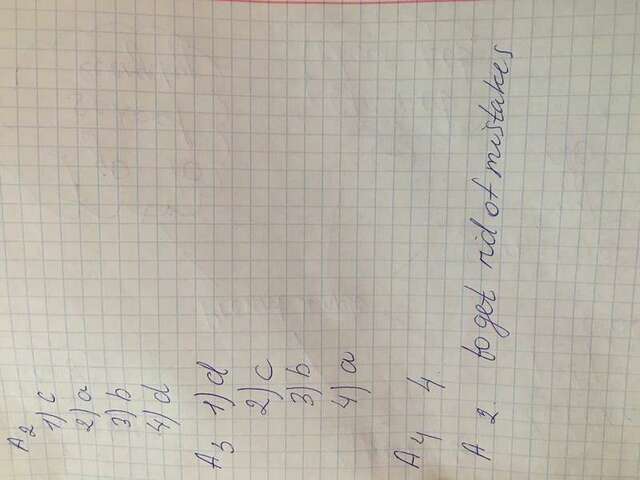 A2
1) c
2) a
3) b
4) d
A3 1) d
2) c
3) b
4) a
A4 4.
A 2. to get rid of mistakes